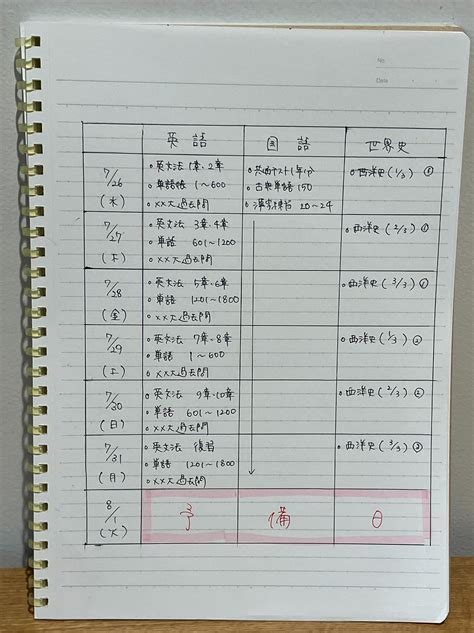 No.
Date
英語 国語 世界史
7/26 (水)
・英文法 1章、2章
・単語帳 1〜600
・××大過去問
・共通テスト1年分
・古典単語 150
・漢字練習 20〜24
・西洋史 (1/3) ①
7/27
・英文法 3章、4章
・単語 601〜1200
・××大過去問
・西洋史 (2/3) ①
7/28 (金)
・英文法 5章、6章
・単語 1201〜1800
・××大過去問
・西洋史 (3/3) ①
7/29 (土)
・英文法 7章、8章
・単語 1〜600
・××大過去問
・西洋史 (1/3) ②
7/30 (日)
・英文法 9章、10章
・単語 601〜1200
・××大過去問
・西洋史 (2/3) ②
7/31 (月)
・英文法 復習
・単語 1201〜1800
・××大過去問
・西洋史 (3/3)
8/1 (火)
予 備 日